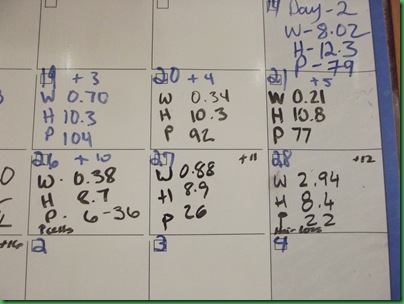 14 Day-2
W-8.02
H-12.3
P-79
19 +3
W 0.70
H 10.3
P 104
20 +4
W 0.34
H 10.3
P 92
21 +5
W 0.21
H 10.8
P 77
26 +10
W. 0.38
H 8.7
P. 6-36
27 +11
W 0.88
H 8.9
P 26
28 +12
W 2.94
H 8.4
P 22
Hair loss
+16
2
3
4